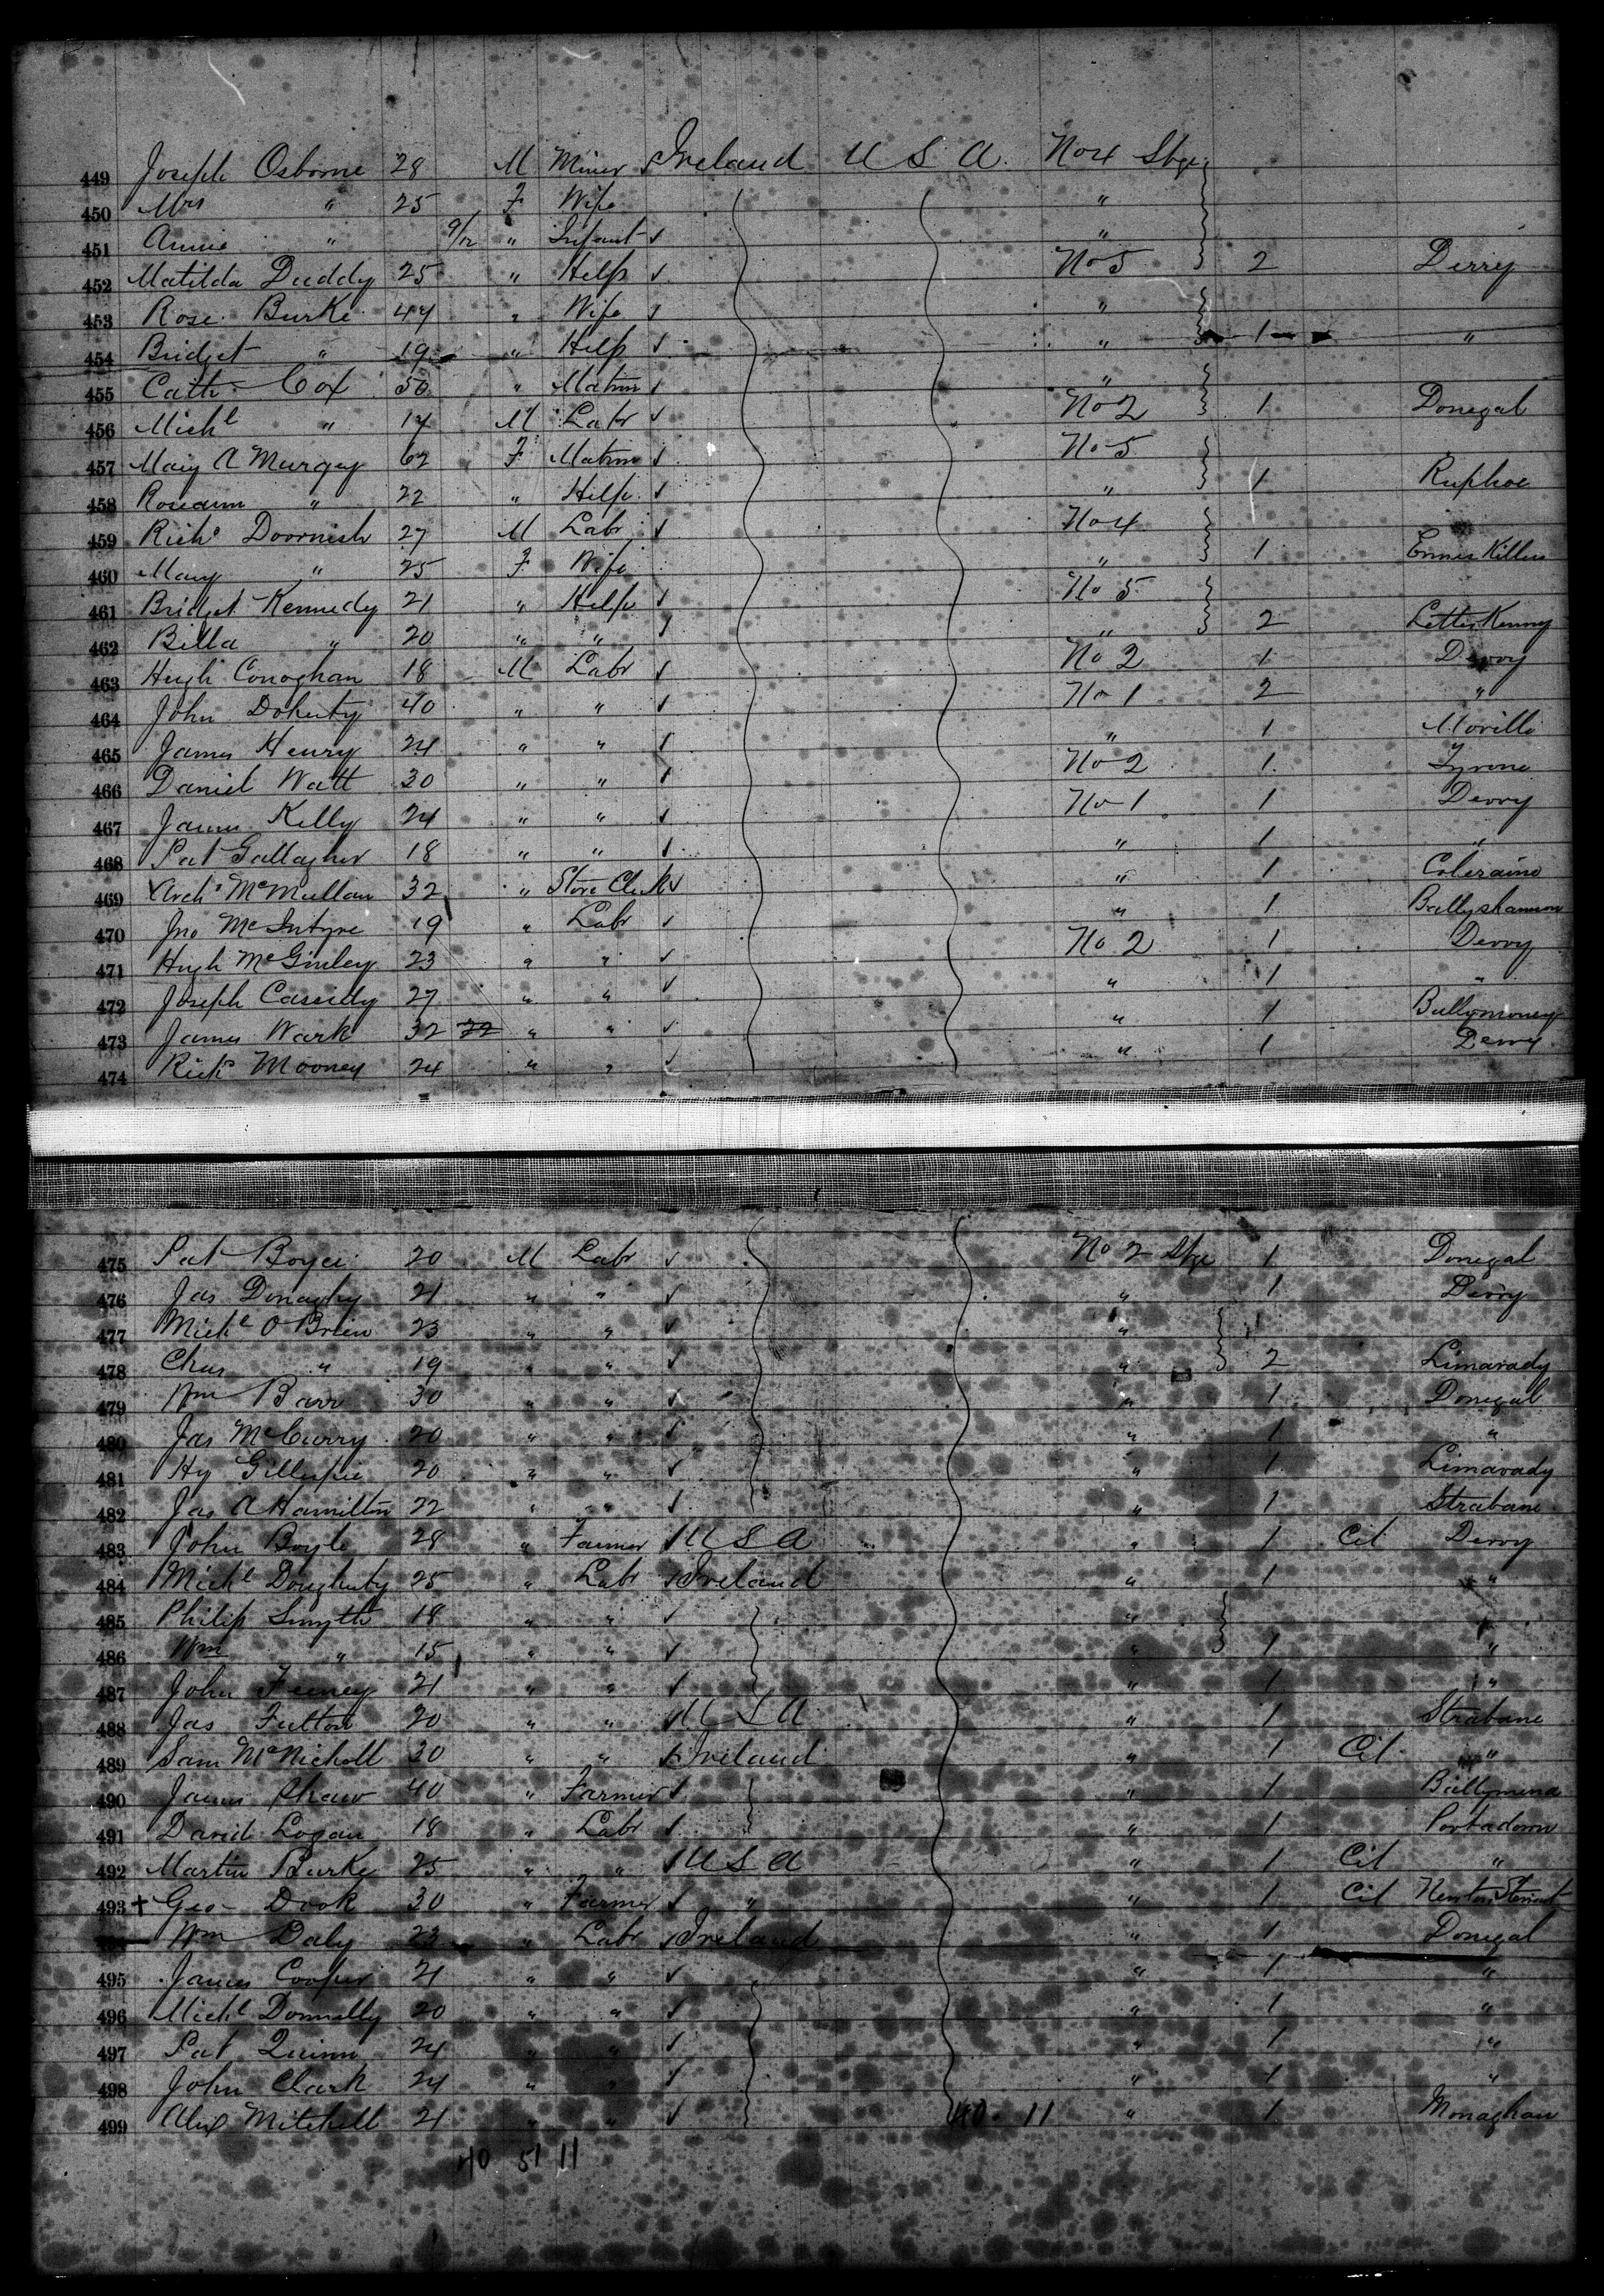 449 Joseph Osborne 28 M Miner Ireland U S A. No 4 Stge
450 Mrs " 25 F Wife "
451 Annie " 9/12 " Infant ✓ "
452 Matilda Duddy 25 " Help ✓ No 5 2 Derry
453 Rose Burke 47 " Wife ✓ "
454 Bridget " 19 " Help ✓ " 1 "
455 Cath Cox 50 " Matron ✓ "
456 Michl " 17 M Labr ✓ No 2 1 Donegal
457 Mary A 62 F Matron ✓ No 5
458 Roseann " 22 " Help ✓ " 1 Raphoe
459 Richd Doornish 27 M Labr ✓ No 4
460 Mary " 25 F Wife " 1 Ennis Killen
461 Bridget Kennedy 21 " Help ✓ No 5
462 Bella " 20 " " ✓ " 2 Letter Kenny
463 Hugh Conoghan 18 M Labr ✓ No 2 1 Derry
464 John Doherty 40 " " ✓ No 1 2 "
465 James Henry 24 " " ✓ " 1 Moville
466 Daniel Watt 30 " " ✓ No 2 1 Tyrone
467 James Kelly 24 " " ✓ No 1 1 Derry
468 Pat Gallagher 18 " " ✓ " 1 "
469 Archd McMullan 32 " Store Clerk ✓ " 1 Coleraine
470 Jno McIntyre 19 " Labr ✓ " 1 Ballyshannon
471 Hugh McGinley 23 " " ✓ No 2 1 Derry
472 Joseph Cassidy 27 " " ✓ " 1 "
473 James Wark 32 " " ✓ " 1 Ballymoney
474 Richd Mooney 24 " " ✓ " 1 Derry
475 Pat Boyce 20 M Labr ✓ No 2 Stge 1 Donegal
476 Jas Donaghy 21 " " ✓ " 1 Derry
477 Michl O'Brien 23 " " ✓ "
478 Chas " 19 " " ✓ " 2 Limavady
479 Wm Barr 30 " " ✓ " 1 Donegal
480 Jas McCurry 20 " " ✓ " 1 "
481 Hy Gillespie 20 " " ✓ " 1 Limavady
482 Jas A Hamilton 22 " " ✓ " 1 Strabane
483 John Boyle 28 " Farmer ✓ U S A " 1 Cit Derry
484 Michl Dougherty 25 " Labr ✓ Ireland " 1 "
485 Philip Smyth 18 " " ✓ "
486 Wm " 15 " " ✓ " 1 "
487 John Feeney 21 " " ✓ " 1 "
488 Jas Fulton 20 " " ✓ U S A " 1 Strabane
489 Sam McNicholl 30 " " ✓ Ireland " 1 Cit "
490 James Shaw 40 " Farmer ✓ " 1 Ballymena
491 David Logan 18 " Labr ✓ " 1 Portadown
492 Martin Burke 25 " " ✓ U S A " 1 Cit "
493 + Geo Dook 30 " Farmer ✓ " " 1 Cit Newton Stewart
Wm Daly 23 " Labr ✓ Ireland " 1 Donegal
495 James Cooper 21 " " ✓ " 1 "
496 Michl Donnelly 20 " " ✓ " 1 "
497 Pat Quinn 24 " " ✓ " 1 "
498 John Clark 24 " " ✓ " 1 "
499 Alex Mitchell 21 " " ✓ 40 11 " 1 Monaghan
40 51 11